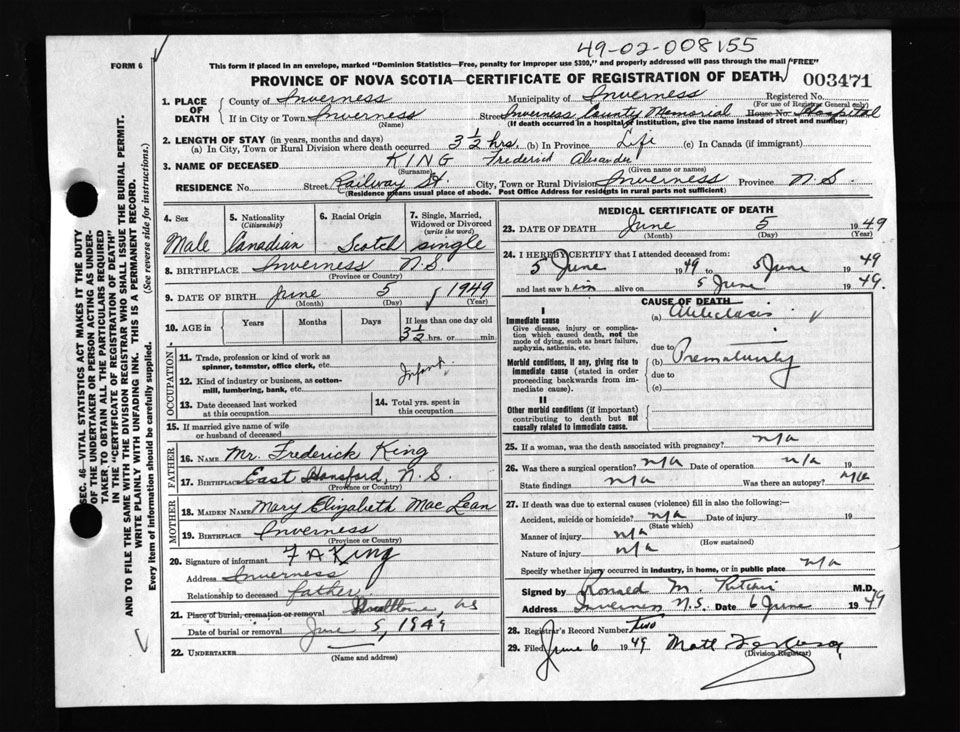 49-02-008155
FORM 6
This form if placed in an envelope, marked "Dominion Statistics—Free, penalty for improper use $300," and properly addressed will pass through the mail "FREE"
PROVINCE OF NOVA SCOTIA—CERTIFICATE OF REGISTRATION OF DEATH 003471
SEC. 46—VITAL STATISTICS ACT MAKES IT THE DUTY
OF THE UNDERTAKER OR PERSON ACTING AS UNDER-
TAKER TO OBTAIN ALL THE PARTICULARS REQUIRED
IN THE "CERTIFICATE OF REGISTRATION OF DEATH"
AND TO FILE THE SAME WITH THE DIVISION REGISTRAR WHO SHALL ISSUE THE BURIAL PERMIT.
WRITE PLAINLY WITH UNFADING INK. THIS IS A PERMANENT RECORD.
Every item of information should be carefully supplied. (See reverse side for instructions.)
1. PLACE OF DEATH
County of Inverness Municipality of Inverness Registered No.
(For use of Registrar General only)
If in City or Town Inverness Street Inverness County Memorial House No. Hospital
(Name) (If death occurred in a hospital or institution, give the name instead of street and number)
2. LENGTH OF STAY (in years, months and days)
(a) In City, Town or Rural Division where death occurred 3½ hrs. (b) In Province Life (c) In Canada (if immigrant)
3. NAME OF DECEASED KING Frederick Alexander
(Surname) (Given name or names)
RESIDENCE No. Street Railway St. City, Town or Rural Division Inverness Province N.S.
(Residence means usual place of abode. Post Office Address for residents in rural parts not sufficient)
4. Sex 5. Nationality (Citizenship) 6. Racial Origin 7. Single, Married, Widowed or Divorced (write the word)
Male Canadian Scotch single
8. BIRTHPLACE Inverness N.S.
(Province or Country)
9. DATE OF BIRTH June 5 1949
(Month) (Day) (Year)
10. AGE in Years Months Days If less than one day old
3½ hrs. or min.
OCCUPATION
11. Trade, profession or kind of work as
spinner, teamster, office clerk, etc.
12. Kind of industry or business, as cotton-
mill, lumbering, bank, etc.
Infant
13. Date deceased last worked
at this occupation
14. Total yrs. spent in
this occupation
15. If married give name of wife
or husband of deceased
FATHER
16. NAME Mr. Frederick King
17. BIRTHPLACE East Hansford, N.S.
(Province or Country)
MOTHER
18. MAIDEN NAME Mary Elizabeth MacLean
19. BIRTHPLACE Inverness
(Province or Country)
20. Signature of informant F A King
Address Inverness
Relationship to deceased father
21. Place of burial, cremation or removal NS
Date of burial or removal June 5, 1949
22. UNDERTAKER
(Name and address)
MEDICAL CERTIFICATE OF DEATH
23. DATE OF DEATH June 5 1949
(Month) (Day) (Year)
24. I HEREBY CERTIFY that I attended deceased from:
5 June 1949 to 5 June 1949
and last saw him alive on 5 June 1949.
CAUSE OF DEATH
I
Immediate cause
Give disease, injury or complica-
tion which caused death, not the
mode of dying, such as heart failure,
asphyxia, asthenia, etc.
(a) Atelectasis
due to
Morbid conditions, if any, giving rise to
immediate cause (stated in order
proceeding backwards from im-
mediate cause).
(b) Prematurity
due to
(c)
II
Other morbid conditions (if important)
contributing to death but not
causally related to immediate cause.
25. If a woman, was the death associated with pregnancy? n/a
26. Was there a surgical operation? n/a Date of operation n/a 19
State findings n/a Was there an autopsy? n/a
27. If death was due to external causes (violence) fill in also the following:—
Accident, suicide or homicide? n/a Date of injury 19
(State which)
Manner of injury n/a
(How sustained)
Nature of injury n/a
Specify whether injury occurred in industry, in home, or in public place n/a
Signed by Ronald M. Ritchie M.D.
Address Inverness N.S. Date 6 June 1949
28. Registrar's Record Number Two
29. Filed June 6 1949 Matt
(Division Registrar)